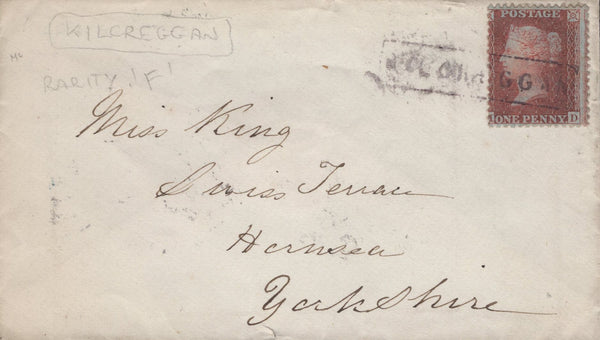 KILCREGGAN
RARITY 'F'
POSTAGE
ONE PENNY D
Miss King
Swiss Terrace
Hornsea
Yorkshire